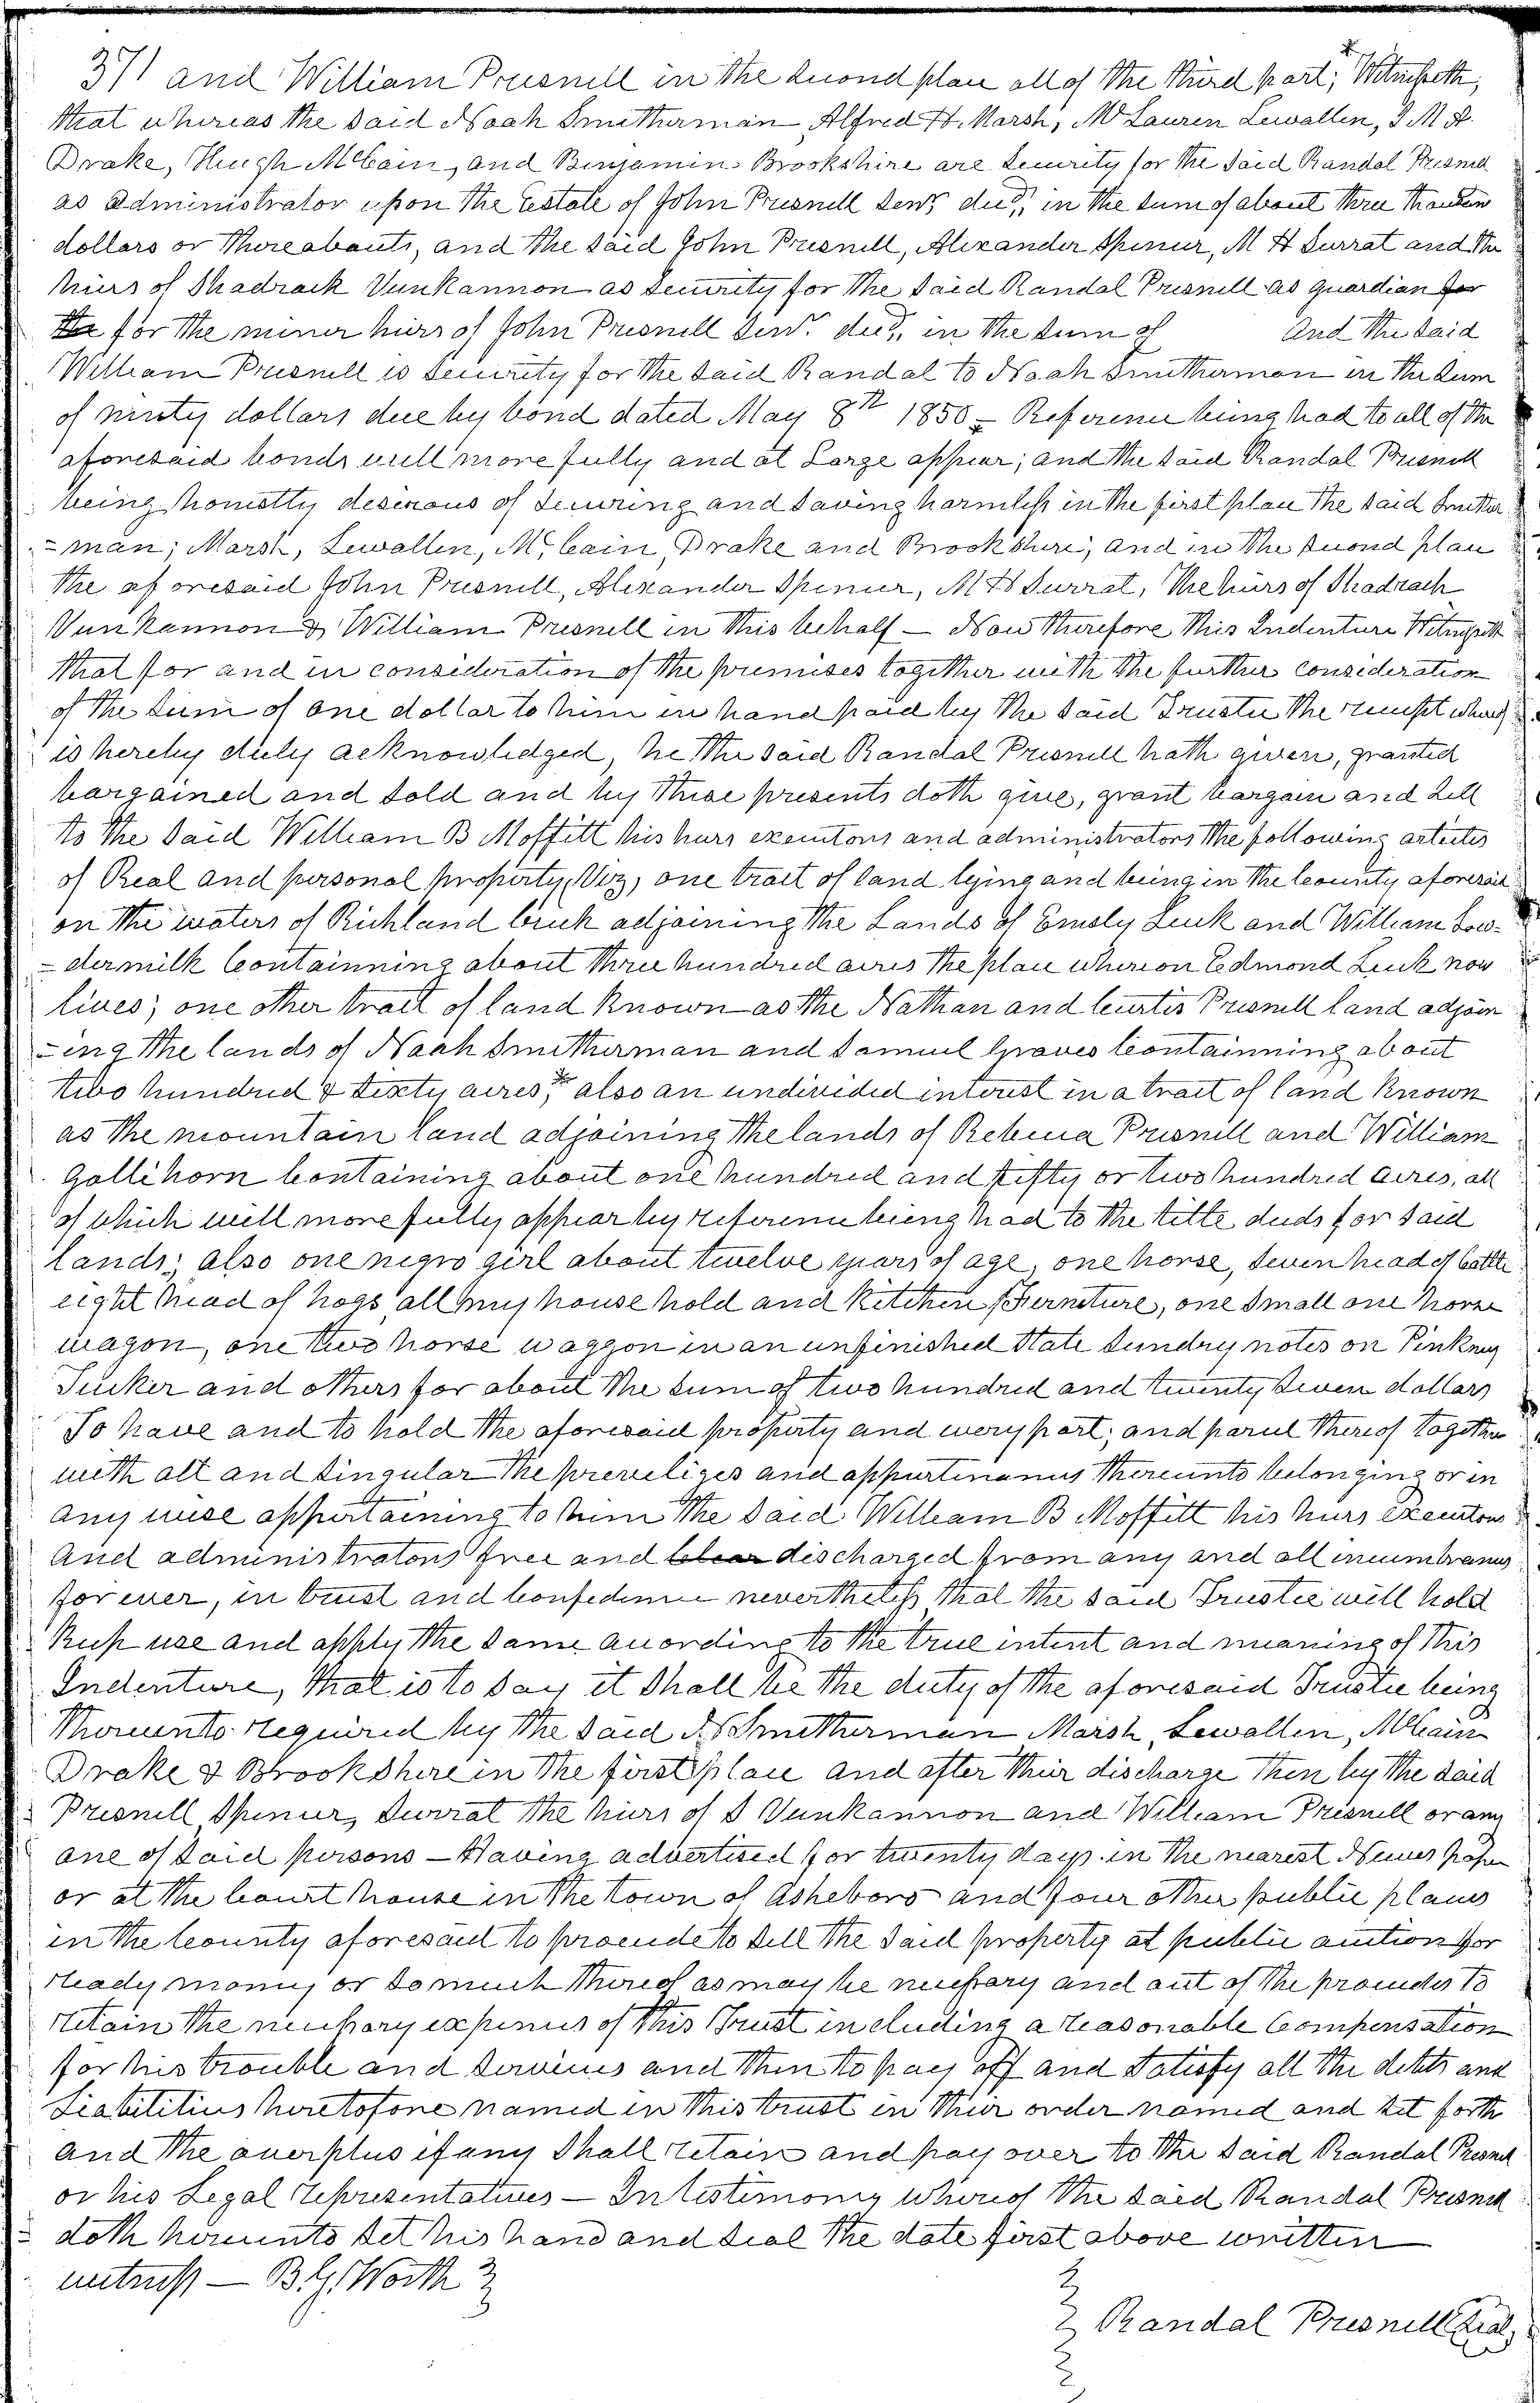 371 and William Presnell in the second place all of the third part; Witnesseth,
that whereas the said Noah Smitherman Alfred H. Marsh, McLauren Lewallen, J M A.
Drake, Hugh McCain, and Benjamin Brookshire are security for the said Randal Presnell
as administrator upon the Estate of John Presnell Senr decd, in the sum of about three thousan
dollars or thereabouts, and the said John Presnell, Alexander Spencer, M H Surrat and the
heirs of Shadrack Vunkannon as security for the said Randal Presnell as guardian for
for the minor heirs of John Presnell Senr. decd, in the sum of And the said
William Presnell is security for the said Randal to Noah Smitherman in the sum
of ninty dollars due by bond dated May 8th 1850 - Reference being had to all of the
aforesaid bonds will more fully and at Large appear; and the said Randal Presnell
being honestly desirous of securing and saving harmless in the first place the said Smither
=man; Marsh, Lewallen, McCain, Drake and Brookshire; and in the second place
the aforesaid John Presnell, Alexander Spencer, M H Surrat, the heirs of Shadrach
Vunkannon & William Presnell in this behalf - Now therefore this Indenture Witnesseth
that for and in consideration of the premises together with the further consideration
of the sum of one dollar to him in hand paid by the said Trustee the receipt whereof
is hereby duly acknowledged, he the said Randal Presnell hath given, granted
bargained and sold and by these presents doth give, grant bargain and sell
to the said William B Moffitt his heirs executors and administrators the following articles
of Real and personal property, Viz, one tract of land lying and being in the County aforesaid
on the waters of Richland Creek adjoining the Lands of Emsly Luck and William Low-
-dermilk Containning about three hundred acres the place whereon Edmond Luck now
lives; one other tract of land known as the Nathan and Curtis Presnell land adjoin
-ing the lands of Noah Smitherman and Samuel Graves Containning about
two hundred & sixty acres, also an undivided interest in a tract of land known
as the mountain land adjoining the lands of Rebecca Presnell and William
Gollihorn Containing about one hundred and fifty or two hundred acres, all
of which will more fully appear by reference being had to the title deeds for said
lands; also one negro girl about twelve years of age, one horse, seven head of Cattle
eight head of hogs all my house hold and Kitchen Furniture, one small one horse
wagon, one two horse waggon in an unfinished State sundry notes on Pinkney
Tucker and others for about the sum of two hundred and twenty seven dollars
To have and to hold the aforesaid property and every part; and parcel thereof together
with all and singular the preveliges and appurtenances thereunto belonging or in
any wise appertaining to him the said William B Moffitt his heirs executors
And administrators free and clear discharged from any and all incumbrances
forever, in trust and Confidence nevertheless that the said Trustee will hold
Keep use and apply the same according to the true intent and meaning of this
Indenture, that is to say it shall be the duty of the aforesaid Trustee being
thereunto required by the said N Smitherman Marsh, Lewallen, McCain
Drake & Brookshire in the first place and after their discharge then by the said
Presnell, Spencer, Surrat the heirs of S Vunkannon and William Presnell or any
one of said persons - Having advertised for twenty days in the nearest News paper
or at the Court house in the town of Ashebors and four other public places
in the County aforesaid to proceede to sell the said property at public auction for
ready money or so much thereof as may be necessary and out of the proceedes to
retain the necessary expenses of this Trust including a reasonable Compensation
for his trouble and services and then to pay off and satisfy all the debts and
Liabilities heretofore named in this trust in their order named and set forth
and the overplus if any shall retain and pay over to the said Randal Presnell
or his Legal representatives - In testimony whereof the said Randal Presnell
doth hereunto set his hand and seal the date first above written
witness - B. G. Worth
Randal Presnell Seal,